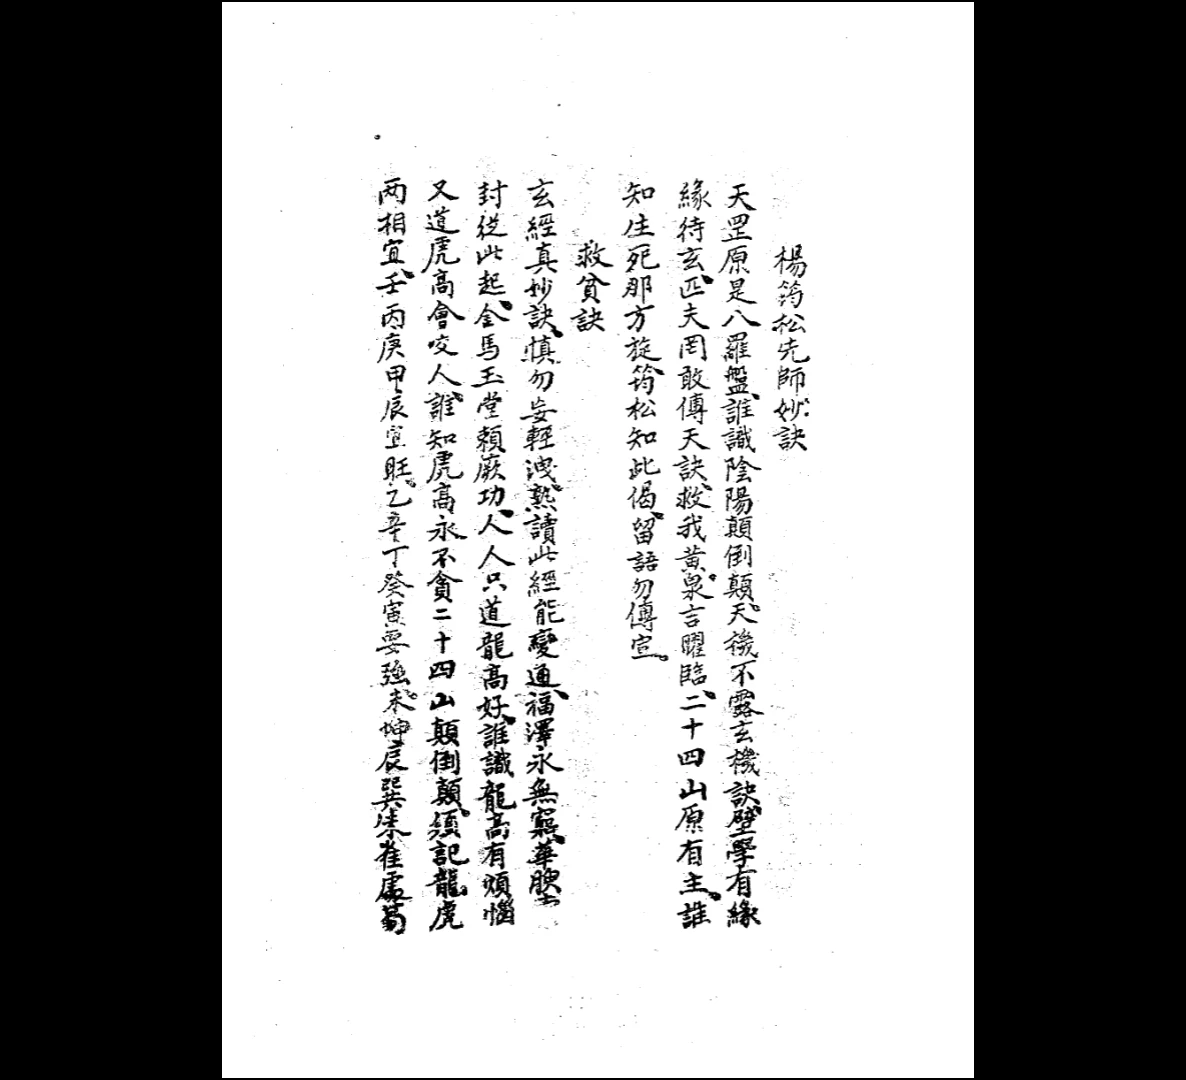 楊筠松先師妙訣
天罡原是八羅盤、誰識陰陽顛倒顛。天機不露玄機訣、壁學有緣
緣待玄、匹夫罔敢傳天訣、救我黄泉。言曜臨、二十四山原有主、誰
知生死那方旋、筠松知此偈、留語勿傳宣。
救貧訣
玄經真妙訣、慎勿妄輕洩。熟讀此經能變通、福澤永無窮、華腴
封從此起、金馬玉堂賴厥功、人人只道龍高好、誰識龍高有煩惱
又道虎高會咬人、誰知虎高永不貪二十四山顛倒顛、須記龍虎
两相宜、壬丙庚甲辰宜旺。乙辛丁癸寅要強。未坤辰巽朱雀處